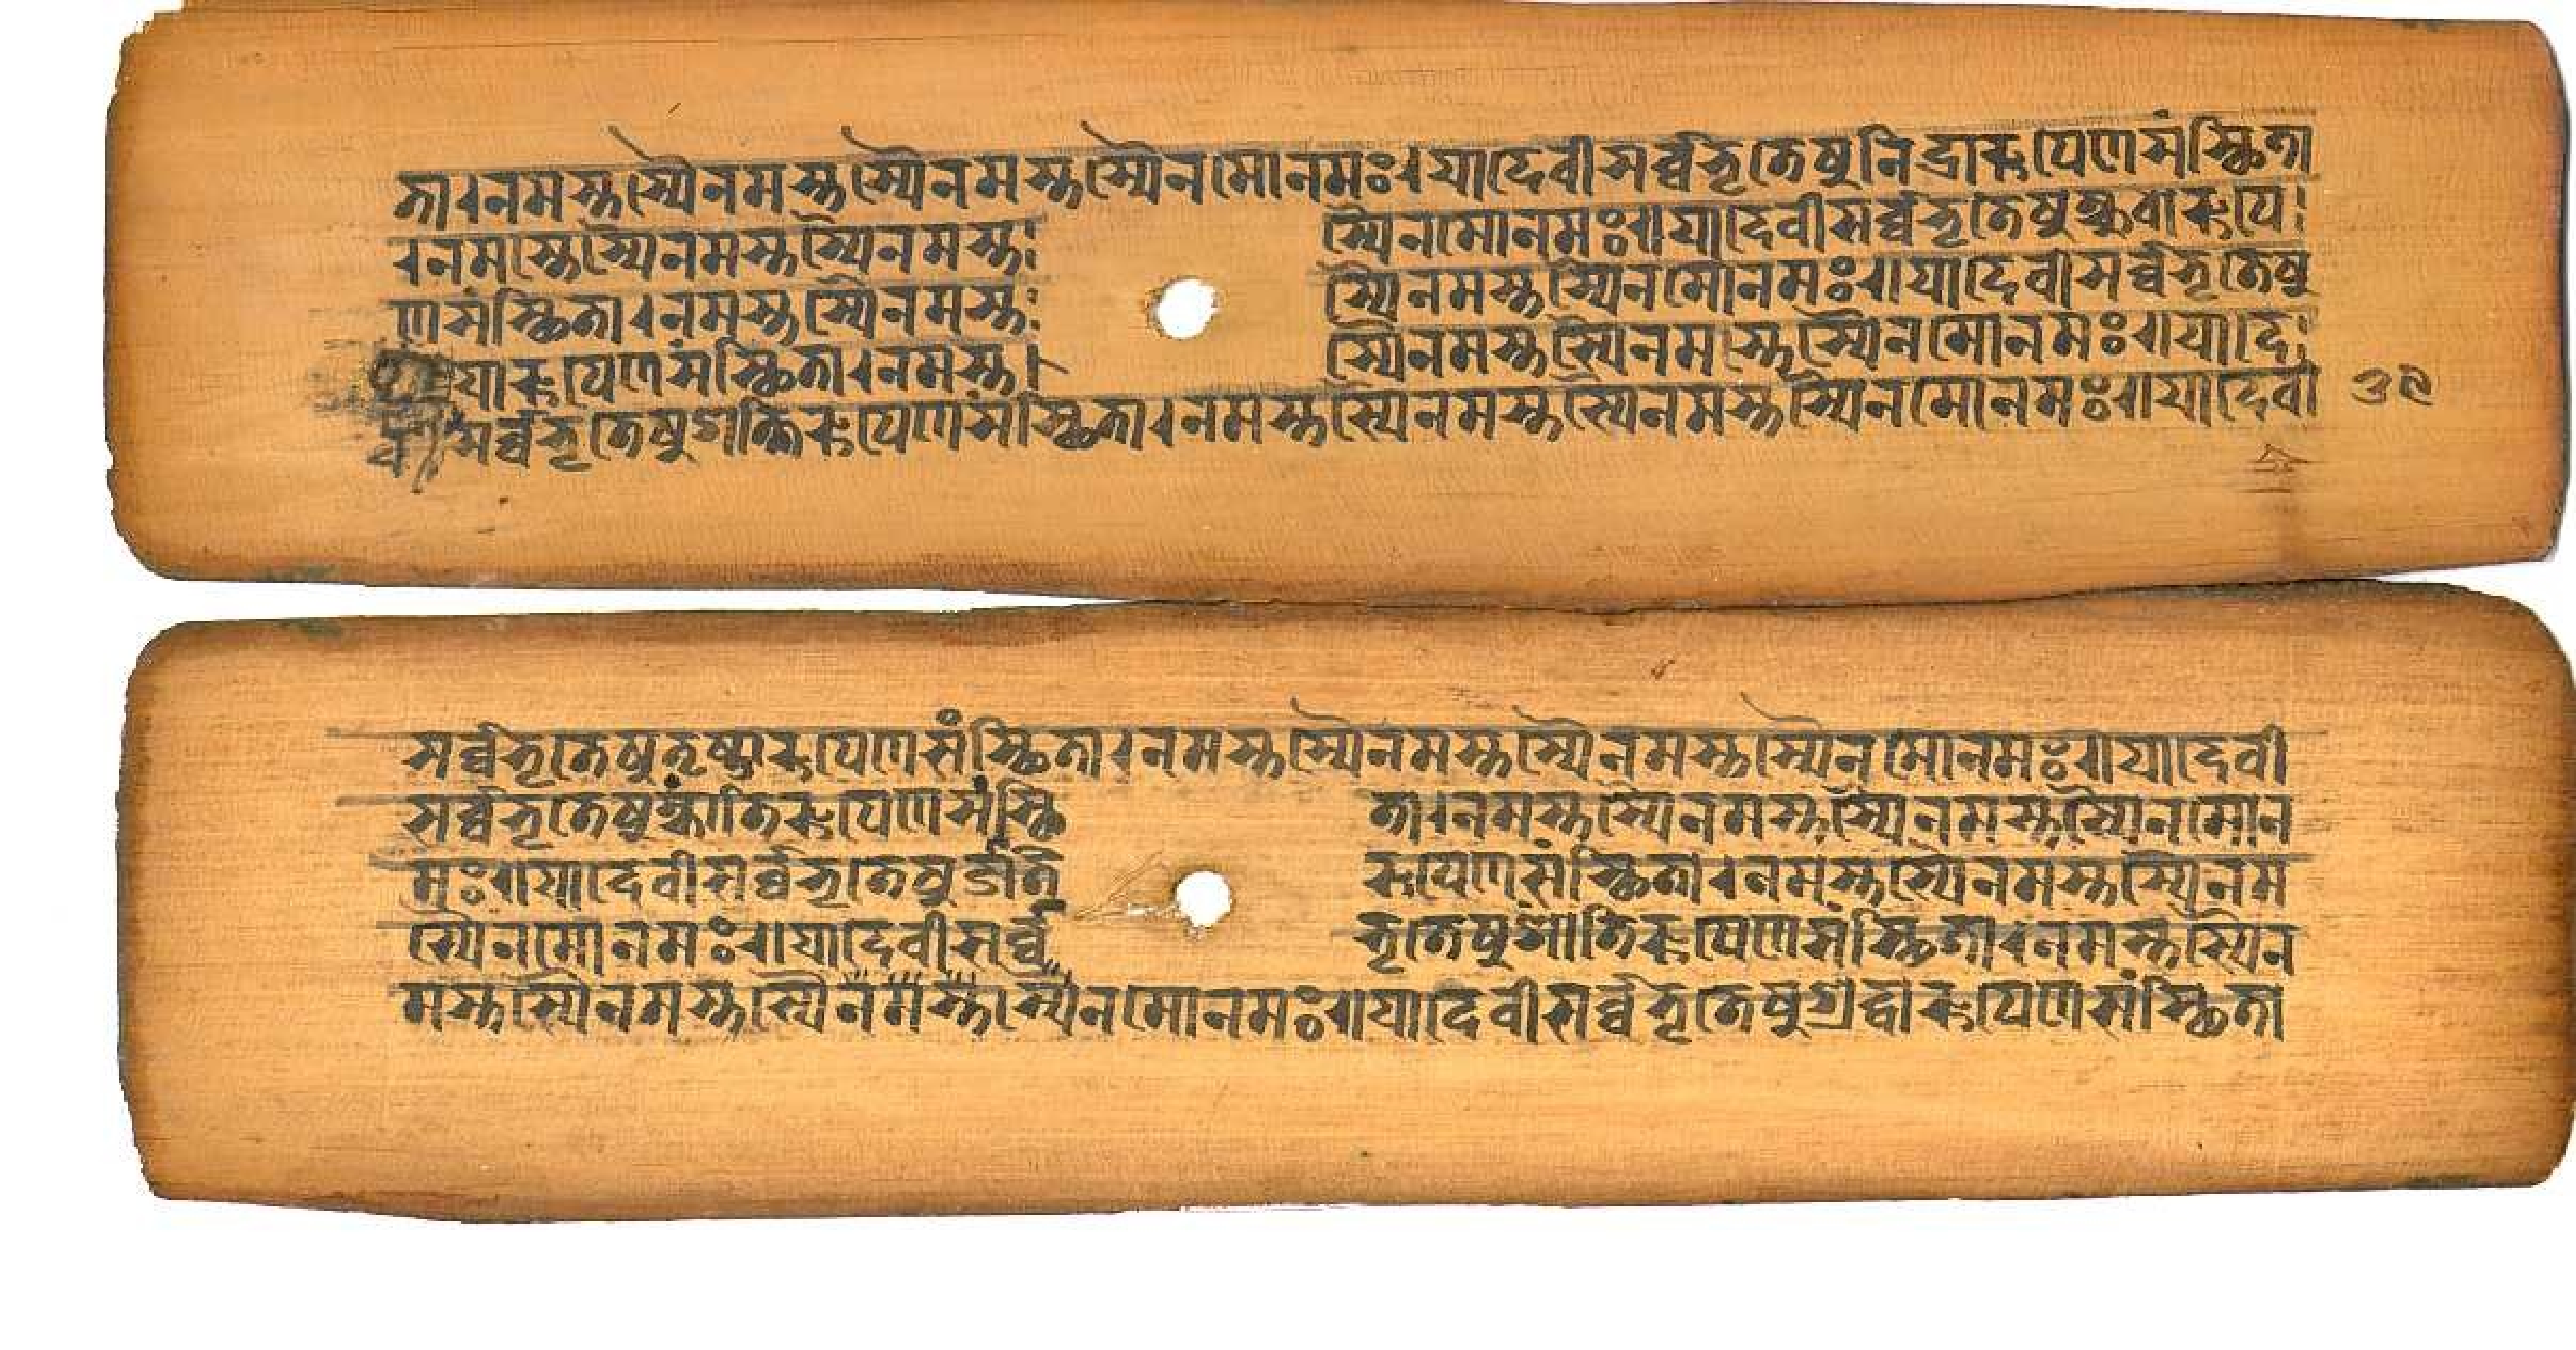 ता।नमस्तस्यैनमस्तस्यैनमस्तस्यैनमोनमः।यादेवीसर्व्वभूतेषुनिद्रारूपेणसंस्थिता
।नमस्तस्यैनमस्तस्यैनमस्त स्यैनमोनमः॥यादेवीसर्व्वभूतेषुक्षुधारूपे
णसंस्थिता।नमस्तस्यैनमस्त स्यैनमस्तस्यैनमोनमः॥यादेवीसर्व्वभूतेषु
यारूपेणसंस्थिता।नमस्त स्यैनमस्तस्यैनमस्तस्यैनमोनमः॥यादे
वीसर्व्वभूतेषुशक्तिरूपेणसंस्थिता।नमस्तस्यैनमस्तस्यैनमस्तस्यैनमोनमः॥यादेवी
सर्व्वभूतेषुतृष्णारूपेणसंस्थिता।नमस्तस्यैनमस्तस्यैनमस्तस्यैनमोनमः॥यादेवी
सर्व्वभूतेषुक्षान्तिरूपेणसंस्थि ता।नमस्तस्यैनमस्तस्यैनमस्तस्यैनमोन
मः॥यादेवीसर्व्वभूतेषुजाति रूपेणसंस्थिता।नमस्तस्यैनमस्तस्यैनमस्त
स्यैनमोनमः॥यादेवीसर्व्व भूतेषुशान्तिरूपेणसंस्थिता।नमस्तस्यैन
मस्तस्यैनमस्तस्यैनमस्तस्यैनमोनमः॥यादेवीसर्व्वभूतेषुश्रद्धारूपेणसंस्थिता